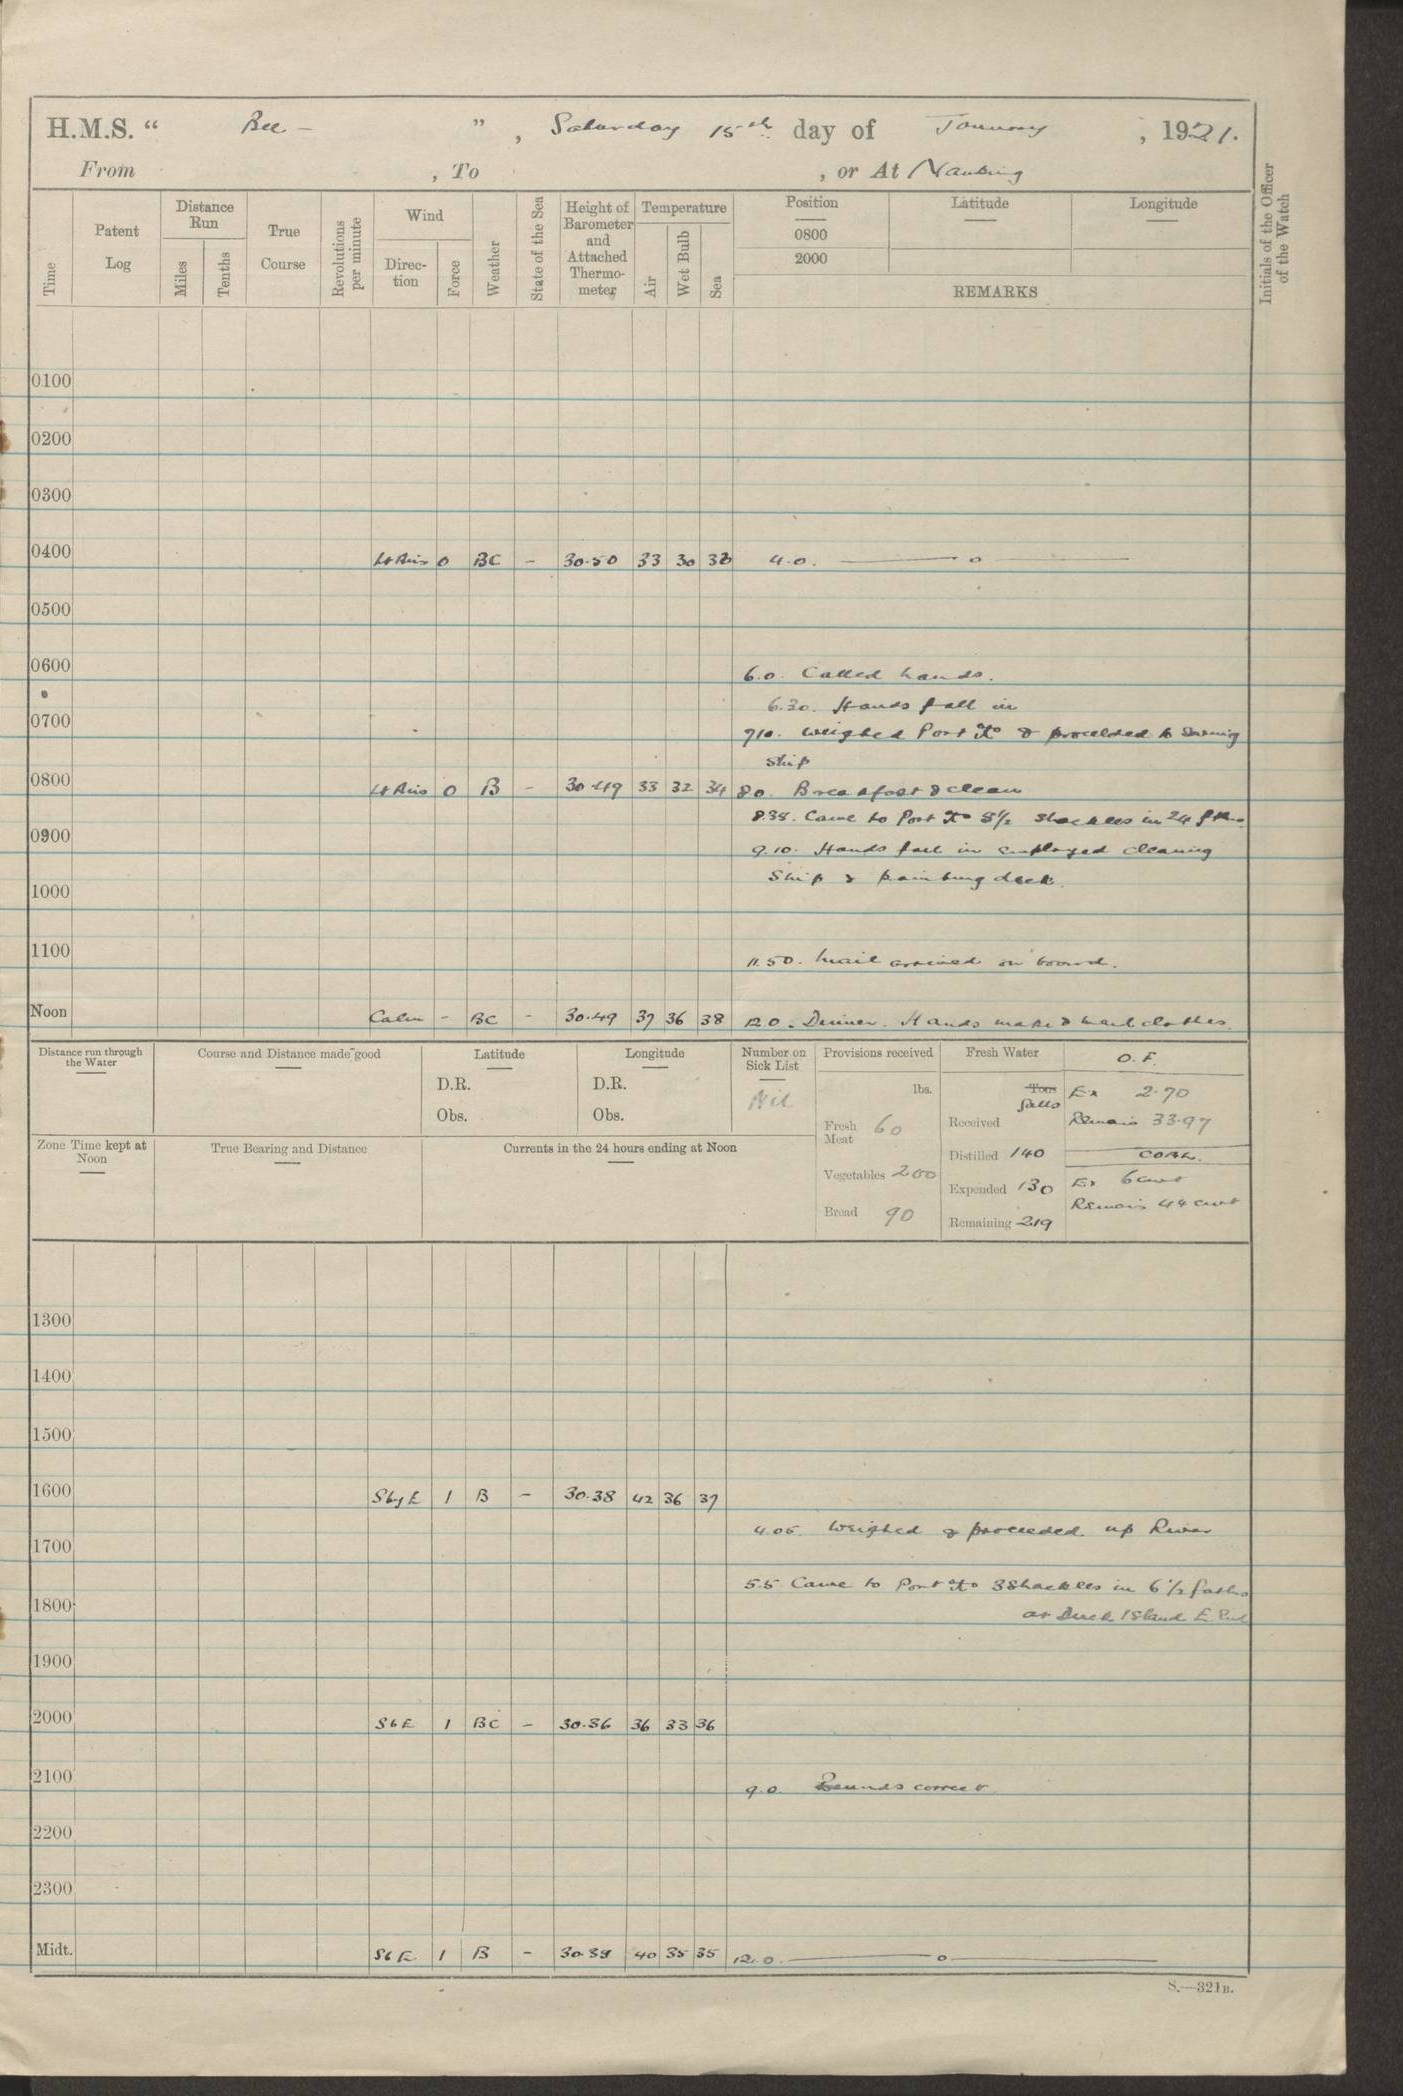 H.M.S. “ Bee – ” , Saturday 15th day of January , 1921.
From , To , or At Nanking
Time
Patent Log
Distance Run
Miles
Tenths
True Course
Revolutions per minute
Wind
Direc-tion
Force
Weather
State of the Sea
Height of Barometer and Attached Thermo-meter
Temperature
Air
Wet Bulb
Sea
Position
0800
2000
Latitude
Longitude
REMARKS
Initials of the Officer of the Watch
0100
0200
0300
0400 Lt Airs 0 BC – 30.50 33 30 4.0. ——— o ———
0500
0600
6.0. Called hands.
6.30. Hands fall in
0700
710. Weighed Port & proceeded to
ship
0800 Lt Airs 0 B – 30.49 33 32 34 80. Breakfast & clean
8.38. Came to Port 3½ shackles in 24 fths.
0900
9.10. Hands fall in employed cleaning
ship & painting deck.
1000
1100
11.50. Mail arrived on board.
Noon Calm – BC – 30.49 37 36 38 12.0. Dinner. Hands make & mend clothes.
Distance run through the Water
Course and Distance made good
Latitude
D.R.
Obs.
Longitude
D.R.
Obs.
Number on Sick List
Nil
Provisions received
lbs.
Fresh Meat 60
Vegetables 200
Bread 90
Fresh Water
Tons
Galls
Received
Distilled 140
Expended 130
Remaining 219
O.F.
Ex 2.70
Remain 33.97
COAL.
Ex 6 cwt
Remain 44 cwt
Zone Time kept at Noon
True Bearing and Distance
Currents in the 24 hours ending at Noon
1300
1400
1500
1600 S by E 1 B – 30.38 42 36 37
4.05. Weighed & proceeded up River
1700
5.5 Came to Port 3 Shackles in 6½ faths
1800
at Duck Island E. End
1900
2000 S b E 1 BC – 30.36 36 33 36
2100
9.0 Rounds correct
2200
2300
Midt. S b E 1 B – 30.39 40 35 35 12.0. ——— o ———
S.—321B.